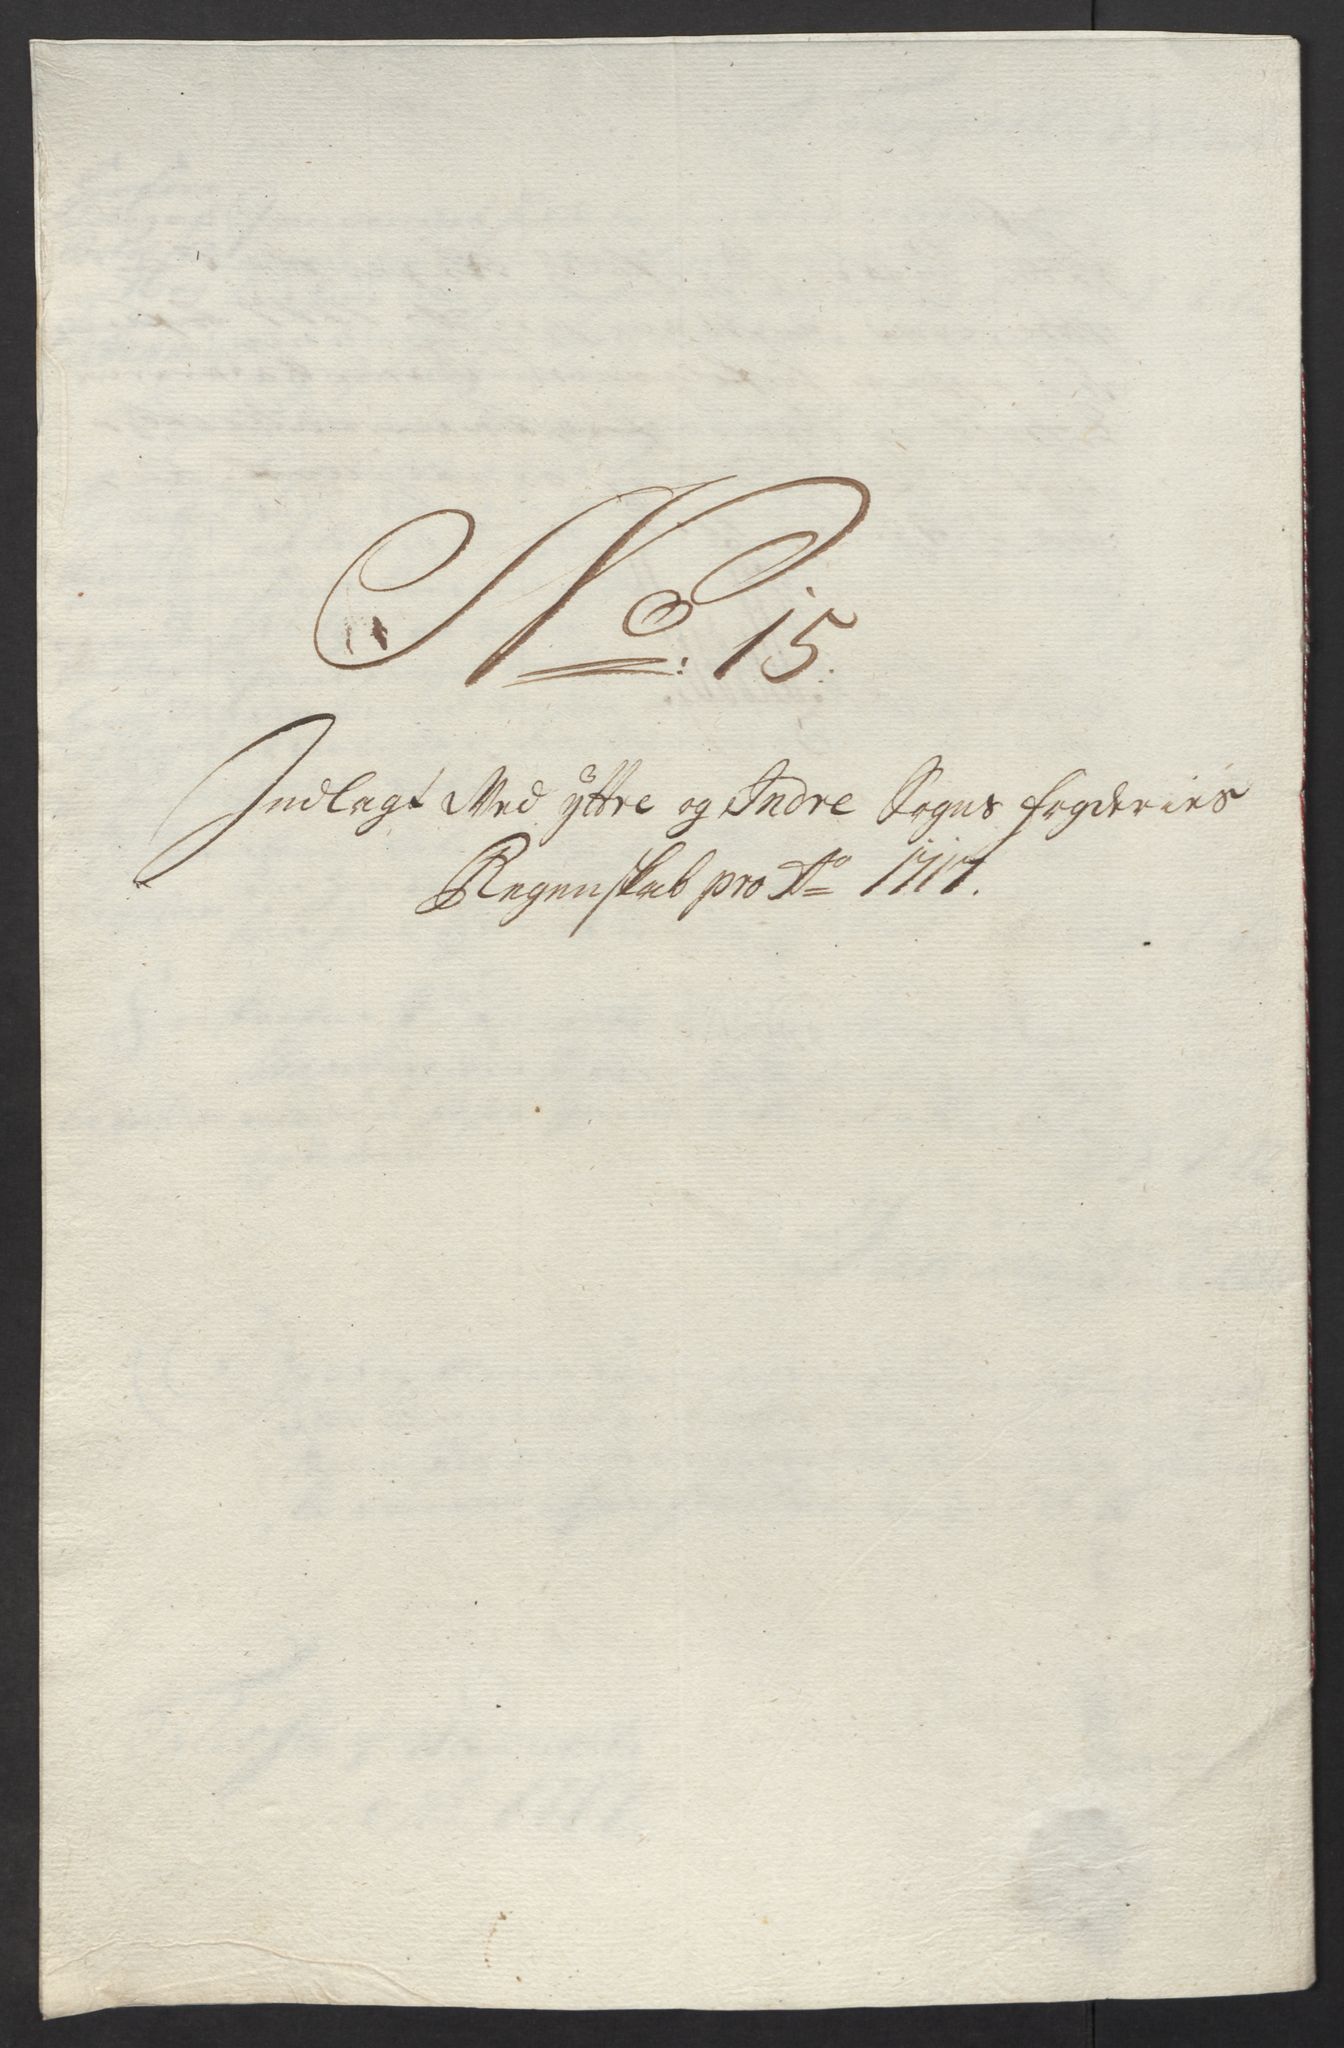 No: 15.
Indlagt Ved ÿttre og Indre Sogns fogderies
Regenskab pro Ao 1717.